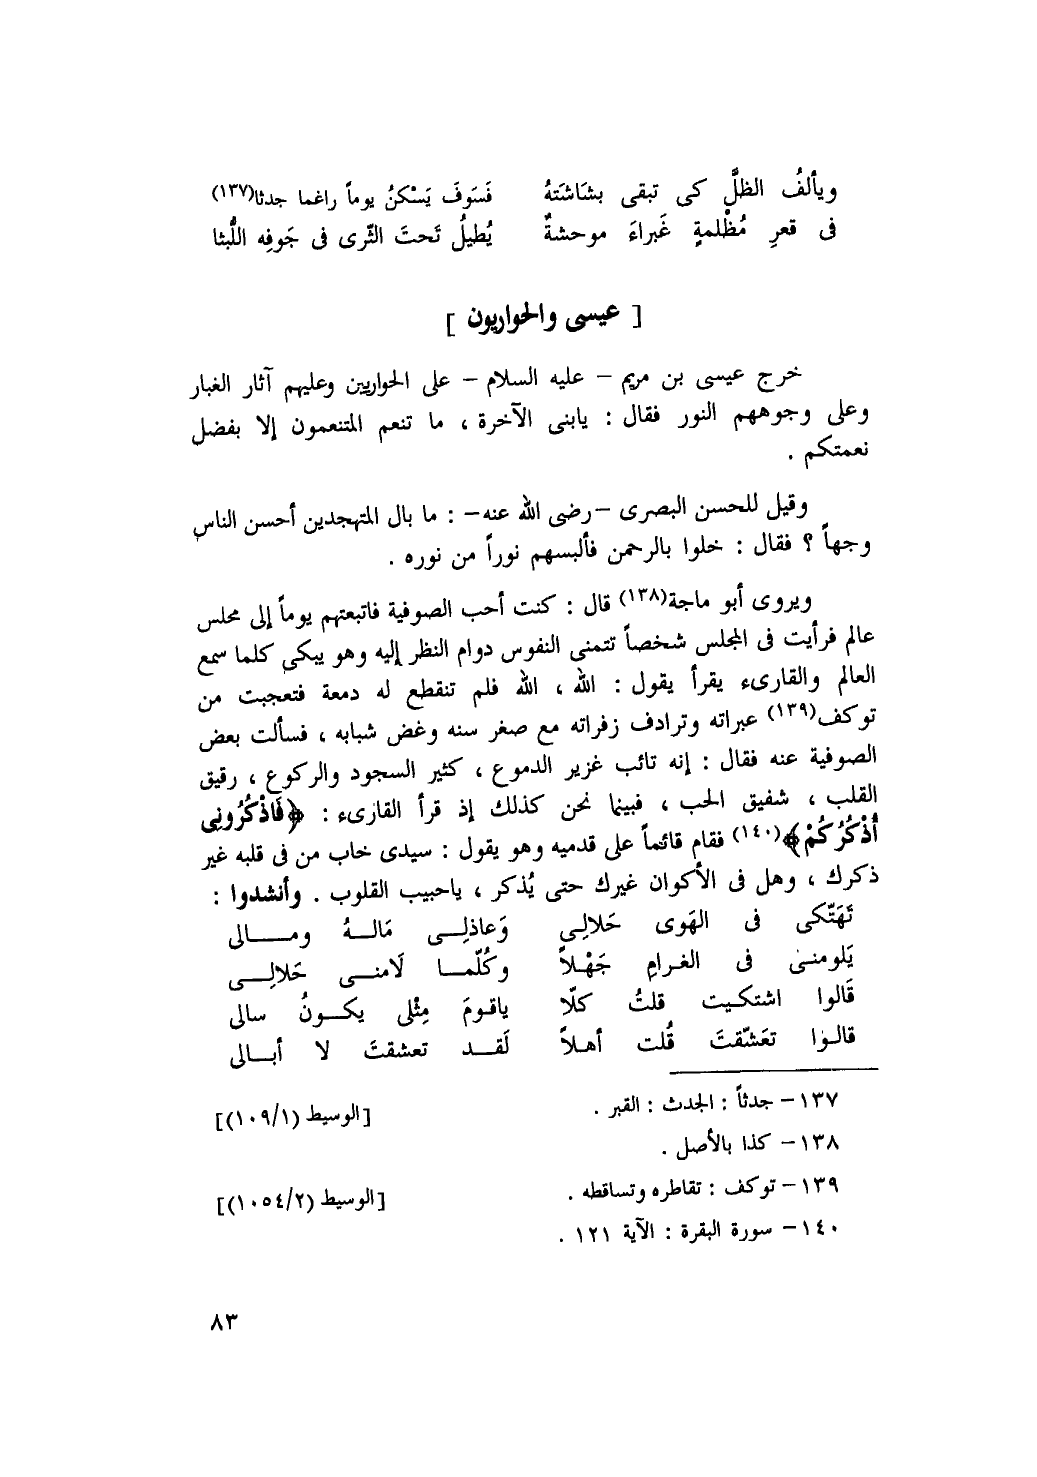 ويألفُ الظلَّ كى تبقى بشَاشَتهُ فَسَوفَ يَسْكنُ يوماً راغما جدثا(١٣٧)
فى قعرِ مُظْلمةٍ غَبراءَ موحشةٌ يُطيلُ تَحتَ الثّرى فى جَوفِه اللُّبثا
[ عيسى والحواريون ]
خرج عيسى بن مريم – عليه السلام – على الحواريين وعليهم آثار الغبار
وعلى وجوههم النور فقال : يابنى الآخرة ، ما تنعم المتنعمون إلا بفضل
نعمتكم .
وقيل للحسن البصرى –رضى الله عنه– : ما بال المتهجدين أحسن الناس
وجهاً ؟ فقال : خلوا بالرحمن فألبسهم نوراً من نوره .
ويروى أبو ماجة(١٣٨) قال : كنت أحب الصوفية فاتبعتهم يوماً إلى مجلس
عالم فرأيت فى المجلس شخصاً تتمنى النفوس دوام النظر إليه وهو يبكى كلما سمع
العالم والقارىء يقرأ يقول : الله ، الله فلم تنقطع له دمعة فتعجبت من
توكف(١٣٩) عبراته وترادف زفراته مع صغر سنه وغض شبابه ، فسألت بعض
الصوفية عنه فقال : إنه تائب غزير الدموع ، كثير السجود والركوع ، رقيق
القلب ، شفيق الحب ، فبينما نحن كذلك إذ قرأ القارىء : ﴿فَاذْكُرُونِى
أَذْكُرْكُمْ﴾(١٤٠) فقام قائماً على قدميه وهو يقول : سيدى خاب من فى قلبه غير
ذكرك ، وهل فى الأكوان غيرك حتى يُذكر ، ياحبيب القلوب . وأنشدوا :
تَهَتّكى فى الهَوى حَلالِى وَعاذلِـى مَالـهُ ومـالى
يَلومنى فى الغرامِ جَهْلاً وكُلّما لَامنى حَلالِى
قَالوا اشتكيت قلتُ كلّا ياقومَ مِثْلى يكونُ سالى
قالوا تعَشّقتَ قُلت أهلاً لَقد تعشقتَ لا أبالى
١٣٧– جدثاً : الجدث : القبر . [الوسيط (١٠٩/١)]
١٣٨– كذا بالأصل .
١٣٩– توكف : تقاطره وتساقطه . [الوسيط (١٠٥٤/٢)]
١٤٠– سورة البقرة : الآية ١٢١ .
٨٣